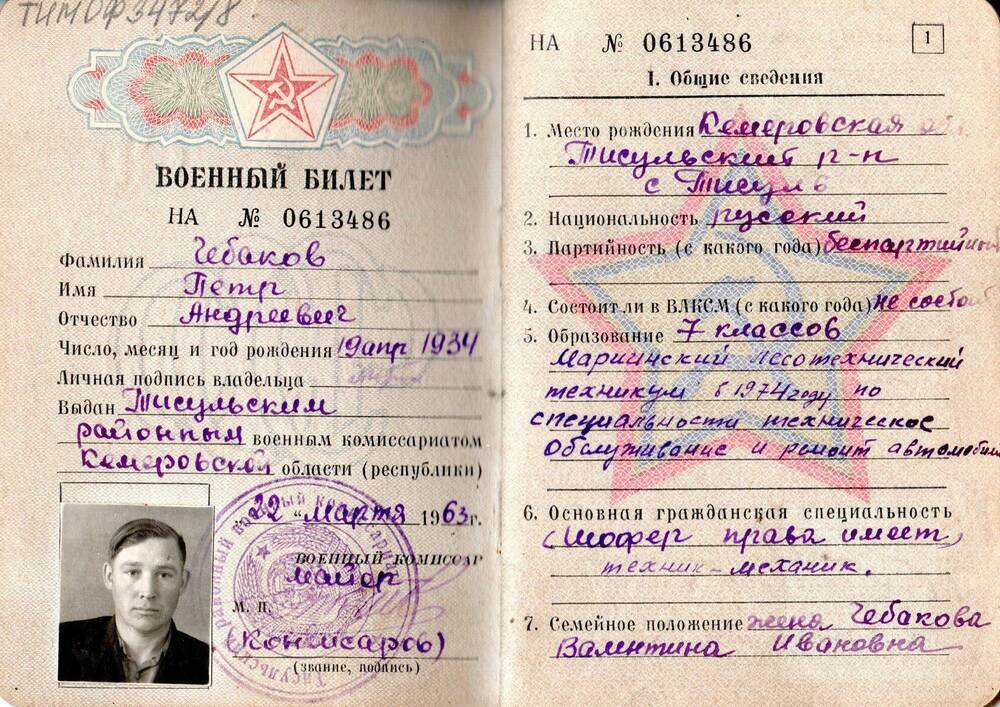 ТИМОФ 3472/8
ВОЕННЫЙ БИЛЕТ
НА № 0613486
Фамилия Чебаков
Имя Петр
Отчество Андреевич
Число, месяц и год рождения 19 апр 1934
Личная подпись владельца
Выдан Тисульским
районным военным комиссариатом
Кемеровской области (республики)
"22" марта 1963г.
ВОЕННЫЙ КОМИССАР
майор
М. П.
(Комисаров)
(звание, подпись)
НА № 0613486
1
I. Общие сведения
1. Место рождения Кемеровская
Тисульский р-н
с Тисуль
2. Национальность русский
3. Партийность (с какого года) беспартийный
4. Состоит ли в ВЛКСМ (с какого года) не состоит
5. Образование 7 классов
Мариинский лесотехнический
техникум в 1974 году по
специальности техническое
обслуживание и ремонт автомобил
6. Основная гражданская специальность
(Шофер права имеет)
техник-механик.
7. Семейное положение жена Чебакова
Валентина Ивановна